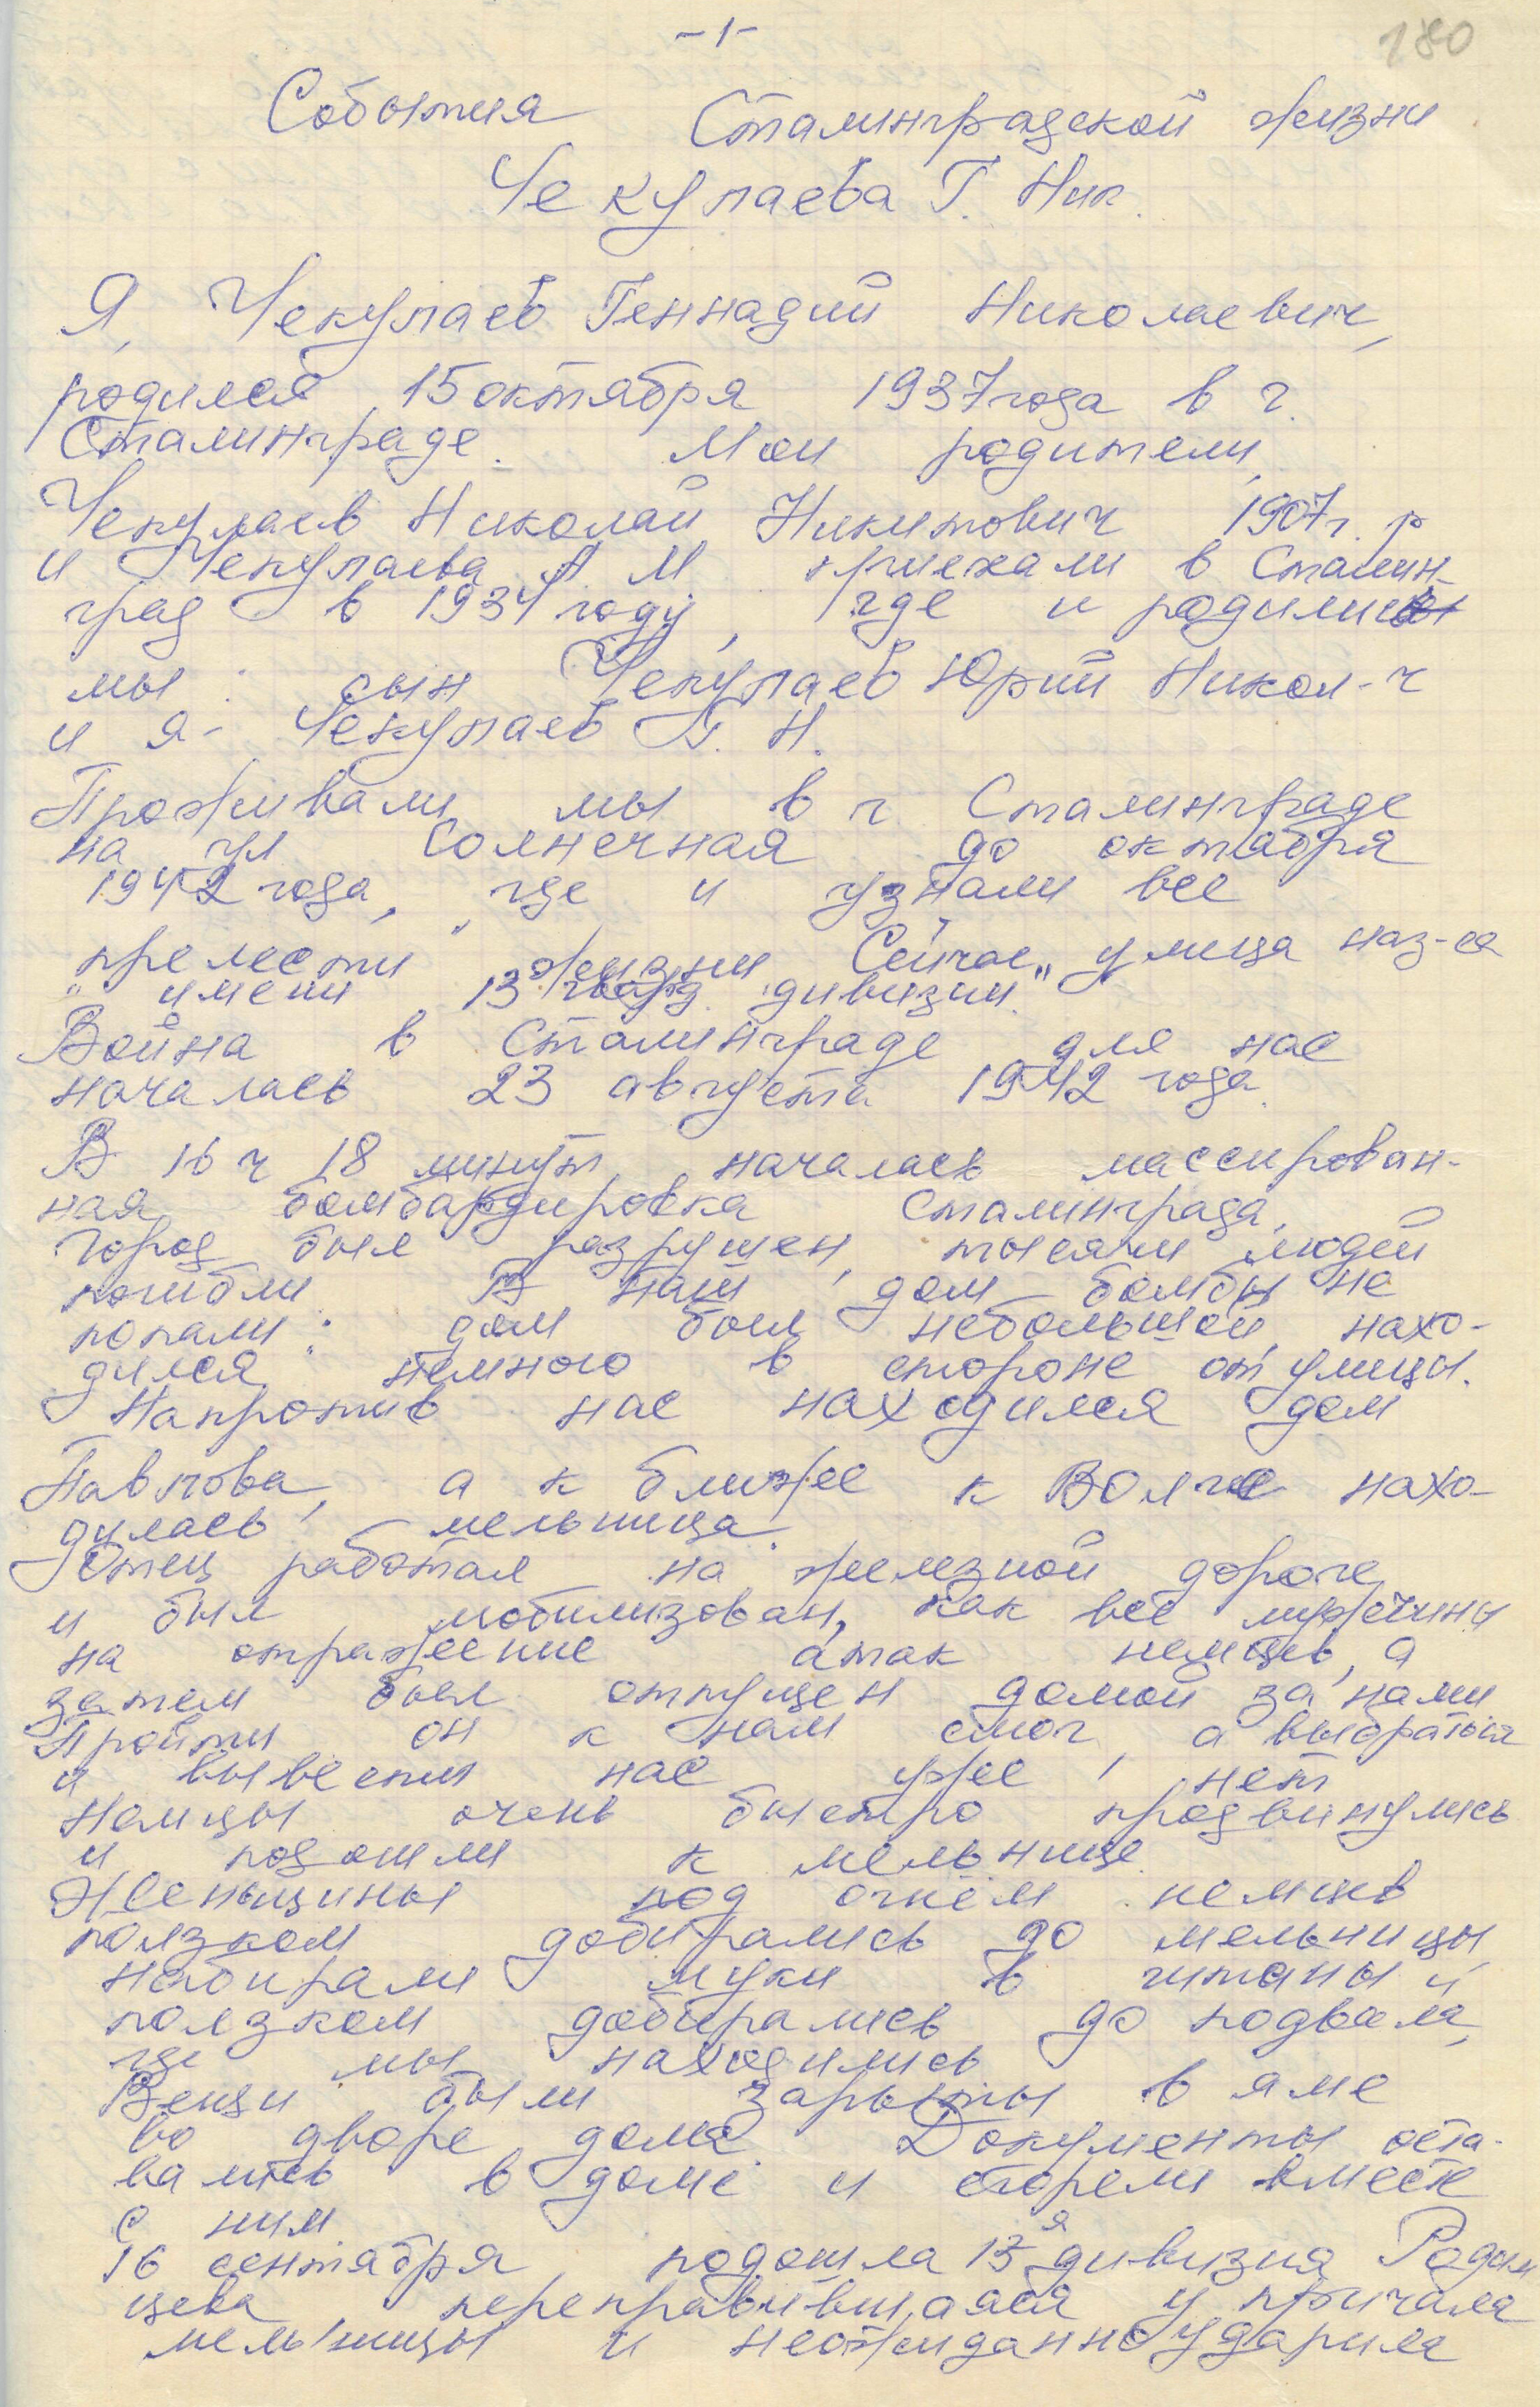 -1-
180
События Сталинградской жизни
Чекулаева Г. Ник.
Я, Чекулаев Геннадий Николаевич,
родился 15 октября 1937 года в г.
Сталинграде. Мои родители,
Чекулаев Николай Никитович 1907 г. р
и Чекулаева А М приехали в Сталин-
град в 1934 году, где и родились
мы: сын Чекулаев Юрий Никол-ч
и я - Чекулаев Г. Н.
Проживали мы в г Сталинграде
на ул Солнечная до октября
1942 года, где и узнали все
"прелести" жизни Сейчас улица наз-ся
"имени 13 гвард. дивизии."
Война в Сталинграде для нас
началась 23 августа 1942 года.
В 16 ч 18 минут началась массирован-
ная бомбардировка Сталинграда,
город был разрушен, тысячи людей
погибли В наш дом бомбы не
попали: дом был небольшой, нахо-
дился немного в стороне от улицы.
Напротив нас находился дом
Павлова, а к ближе к Волге нахо-
дилась мельница.
Отец работал на железной дороге
и был мобилизован, как все мужчины
на отражение атак немцев, а
затем был отпущен домой за нами
Пройти он к нам смог, а выбраться
и вывести нас уже нет
Немцы очень быстро продвинулись
и подошли к мельнице.
Женщины под огнём немцев
ползком добирались до мельницы,
набирали муки в штаны и
ползком добирались до подвала,
где мы находились
Вещи были зарыты в яме
во дворе дома. Документы оста-
вались в доме и сгорели вместе
с ним
16 сентября подошла 13я дивизия Родим
цева, переправившаяся у причала
мельницы и неожиданно ударила